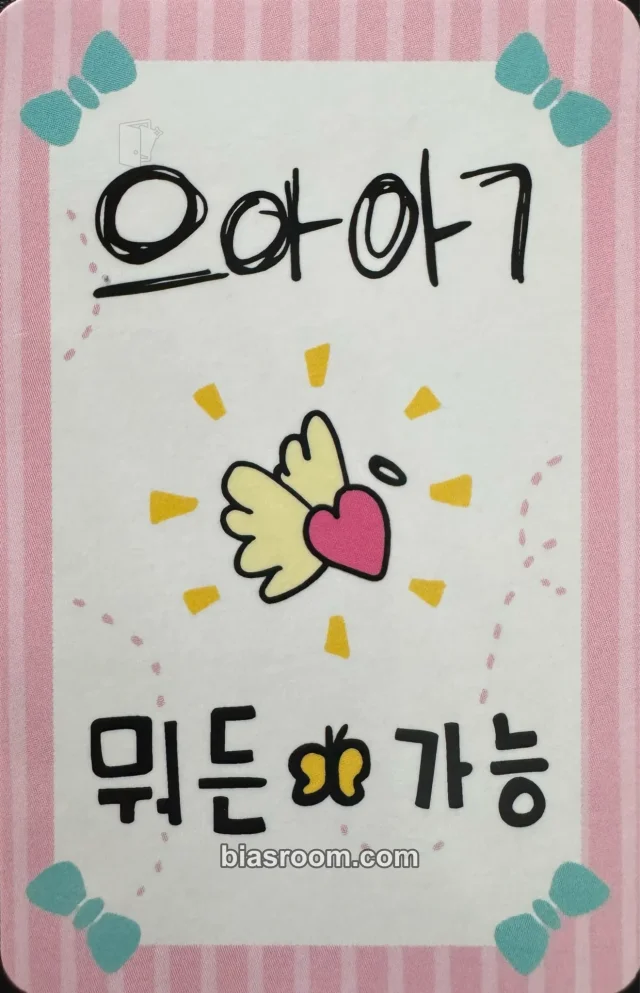 으아아ㄱ
뭐든 가능
biasroom.com